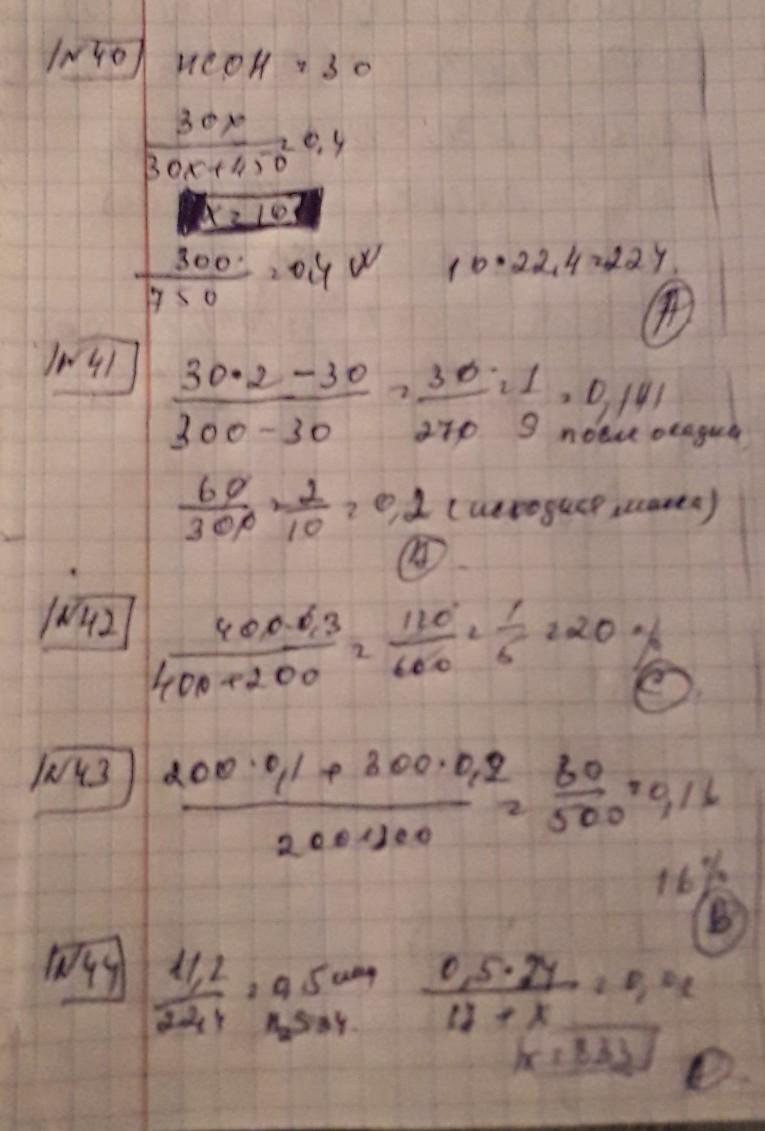 №40 HCOH = 30
30x / 30x+450 = 0,4
x = 10
300 / 750 = 0,4 10·22,4=224
A
№41 30·2 – 30 / 300 – 30 = 30 / 270 = 1 / 9 = 0,111 после осадка
60 / 300 = 2 / 10 = 0,2 (исходная масса)
№42 400·0,3 / 400+200 = 120 / 600 = 1 / 5 = 20 %
C
№43 200·0,1 + 300·0,2 / 200+300 = 80 / 500 = 0,16
16%
B
№44 11,2 / 22,4 = 0,5 0,5·24 / 12 + x